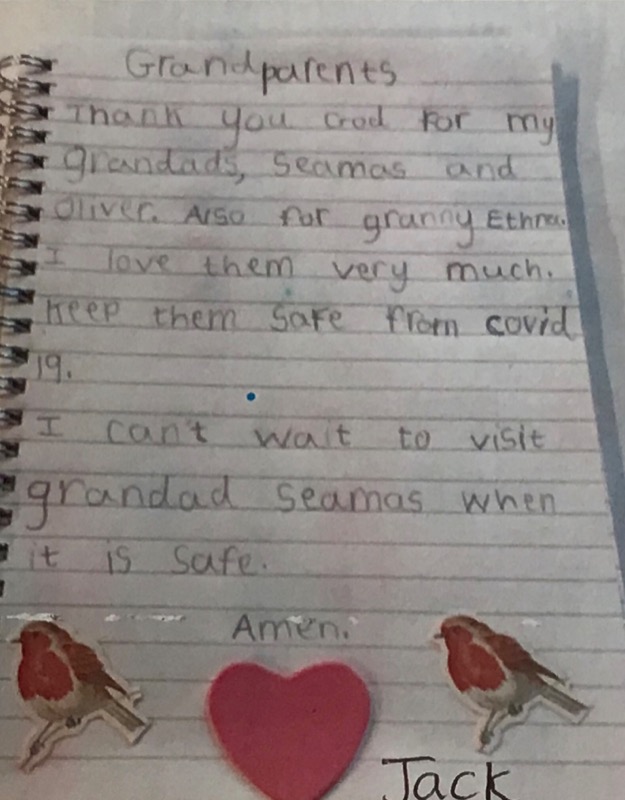 Grandparents
Thank you God for my
grandads, Seamas and
Oliver. Also for granny Ethna.
I love them very much.
Keep them safe from covid
19.
I can't wait to visit
grandad Seamas when
it is safe.
Amen.
Jack